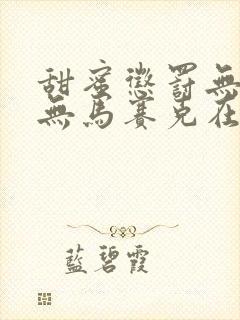 甜蜜懲罰無
無馬賽克在
藍碧霞